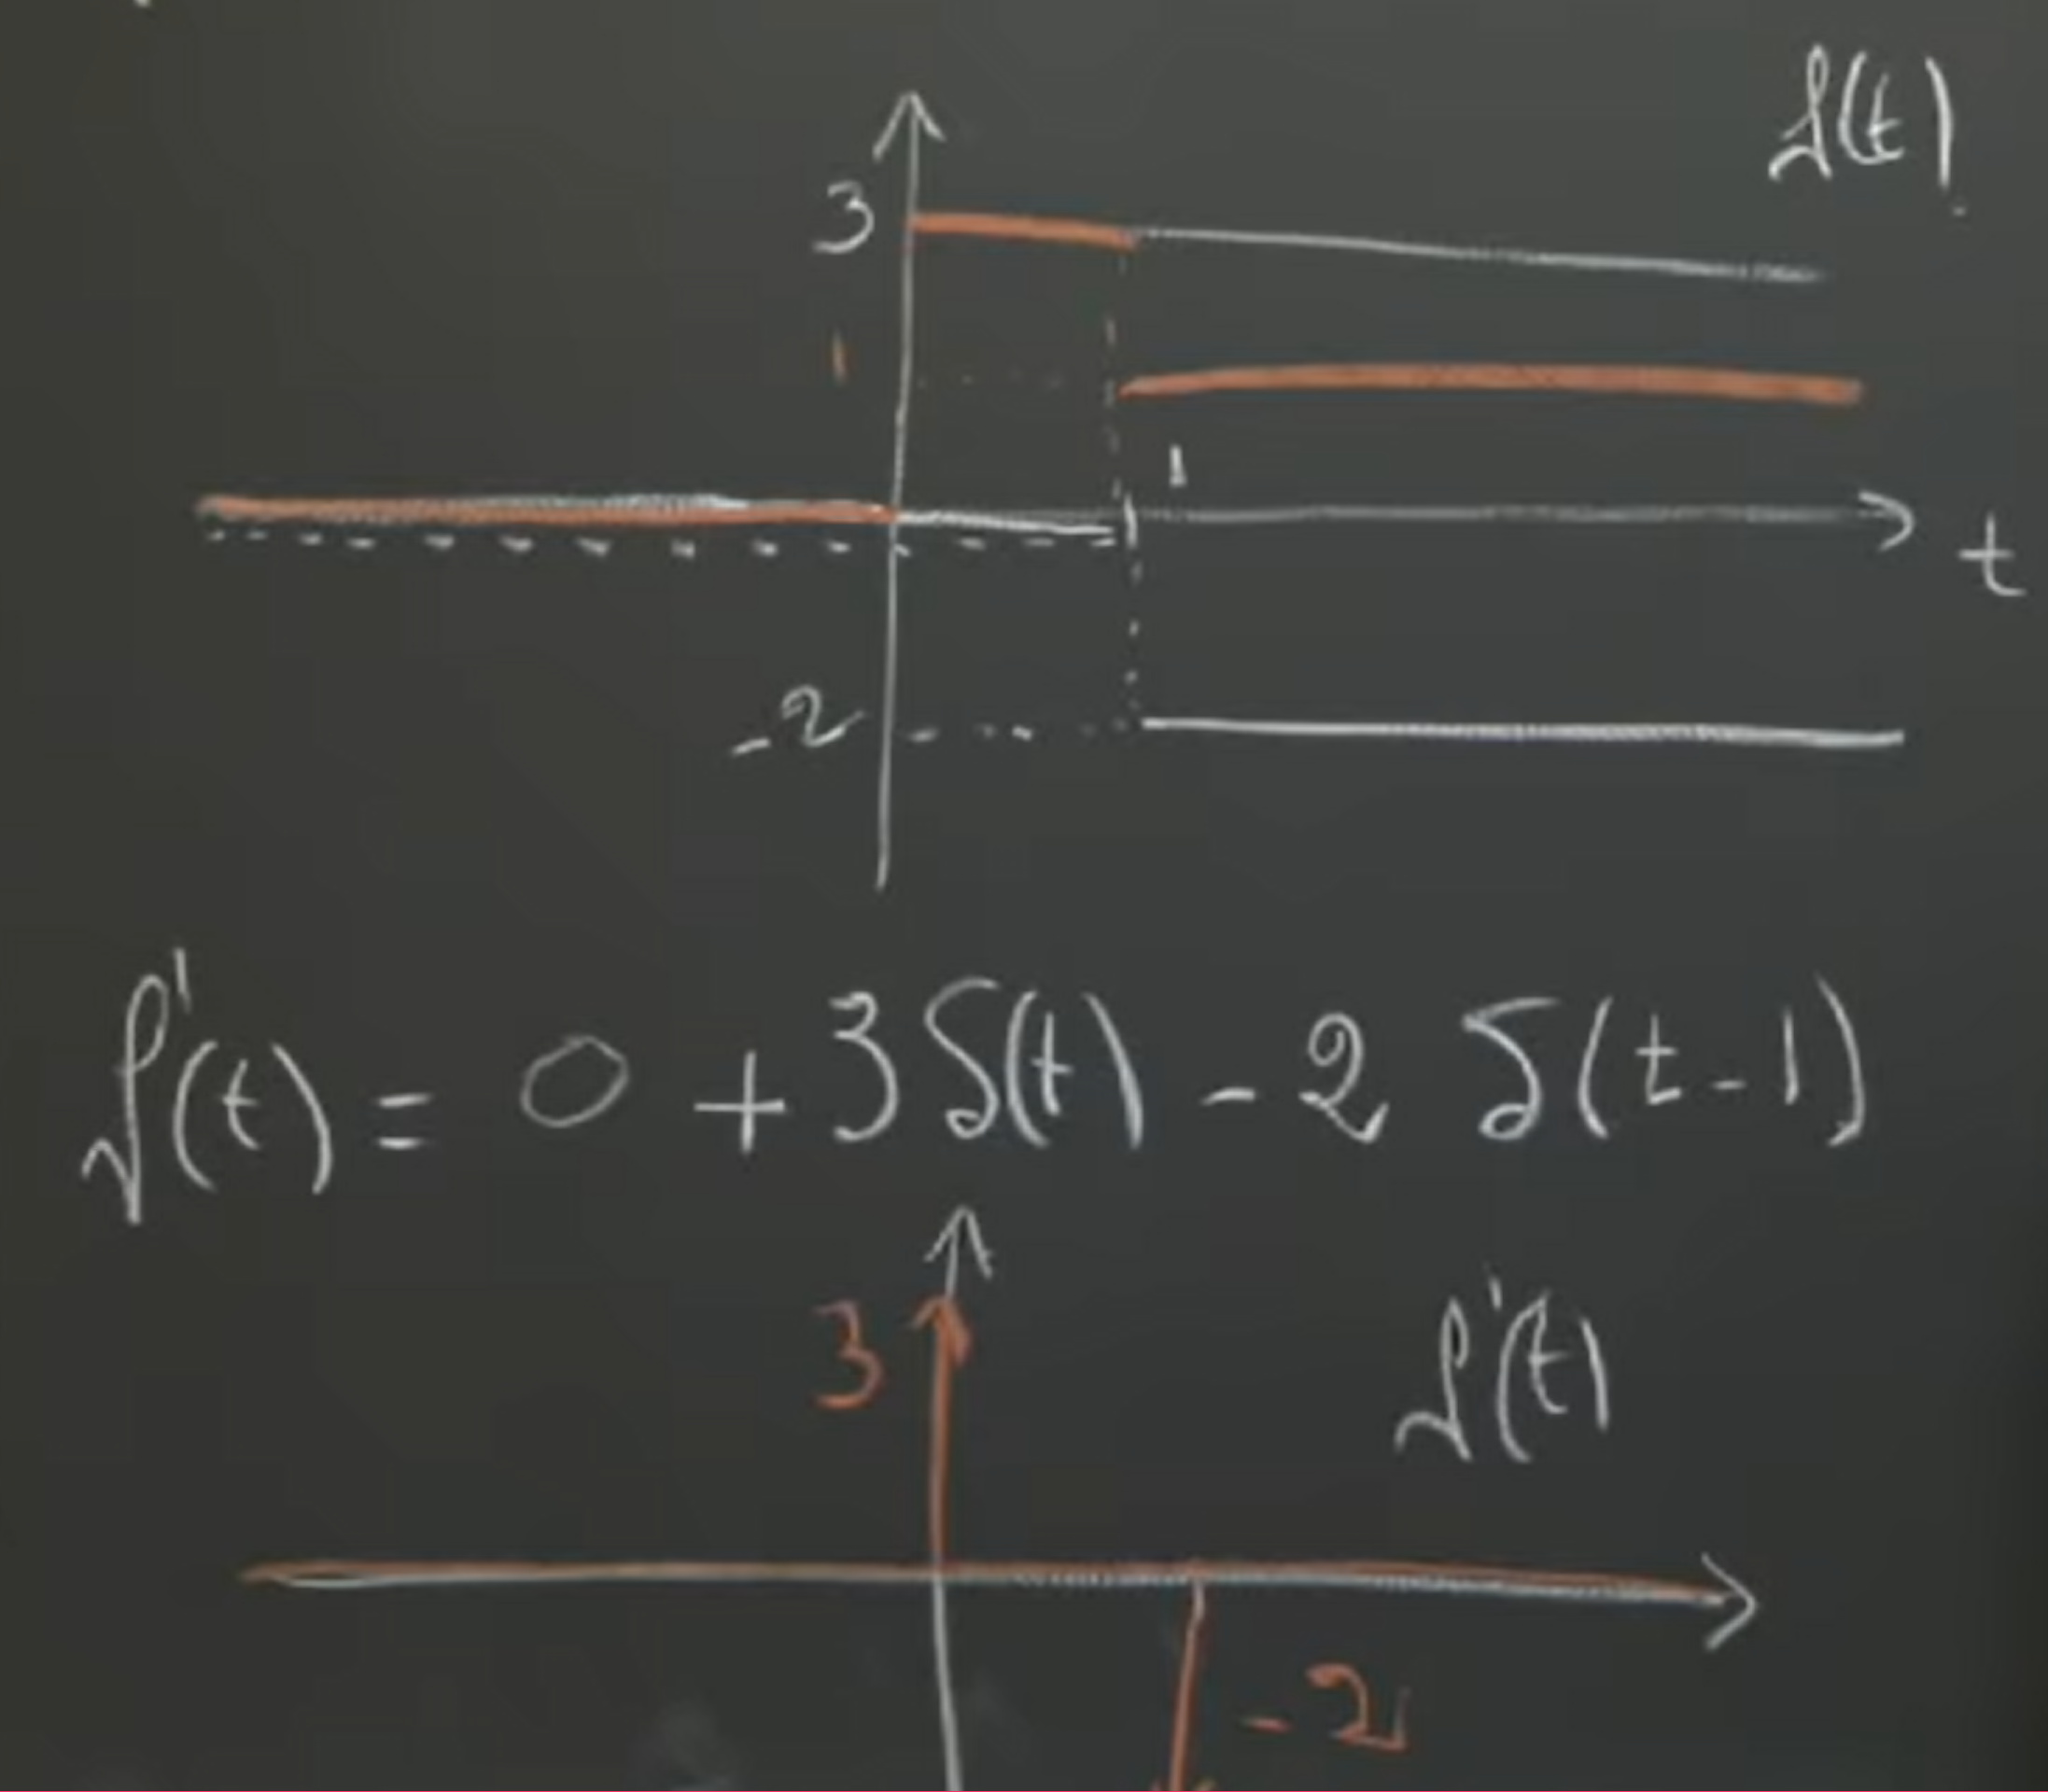 f(t)
3
1
1
t
-2
f'(t) = 0 + 3δ(t) - 2 δ(t-1)
3
f'(t)
-2